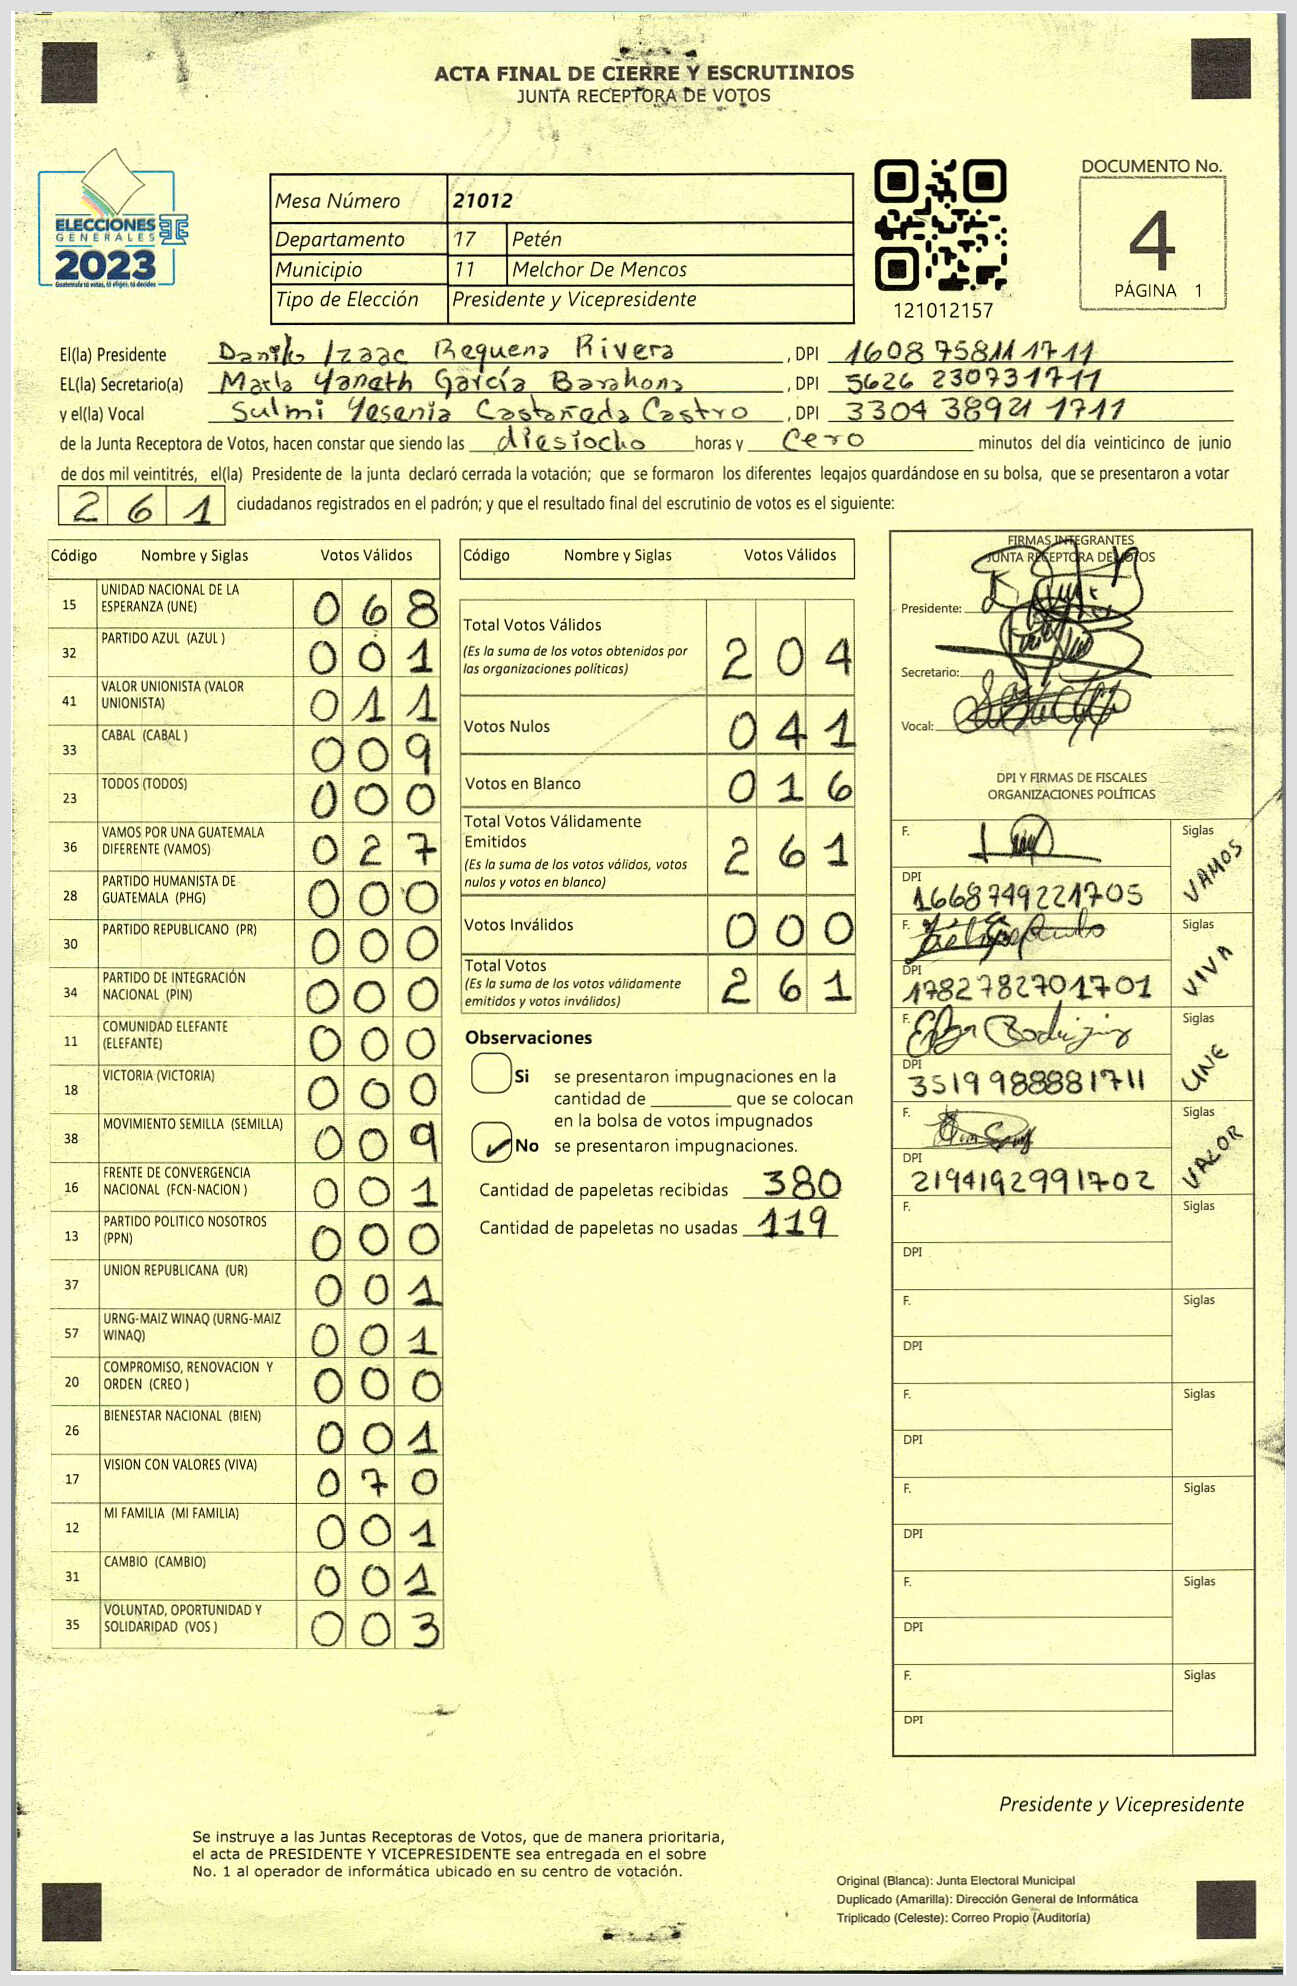 ACTA FINAL DE CIERRE Y ESCRUTINIOS
JUNTA RECEPTORA DE VOTOS
ELECCIONES
GENERALES
2023
Guatemala tú votas, tú eliges, tú decides
Mesa Número 21012
Departamento 17 Petén
Municipio 11 Melchor De Mencos
Tipo de Elección Presidente y Vicepresidente
121012157
DOCUMENTO No.
4
PÁGINA 1
El(la) Presidente Danilo Izaac Requena Rivera, DPI 1608 75811 1711
EL(la) Secretario(a) Marla Yaneth García Barahona, DPI 5626 23073 1711
y el(la) Vocal Sulmi Yesenia Castañeda Castro, DPI 3304 38921 1711
de la Junta Receptora de Votos, hacen constar que siendo las diesiocho horas y cero minutos del día veinticinco de junio
de dos mil veintitrés, el(la) Presidente de la junta declaró cerrada la votación; que se formaron los diferentes legajos guardándose en su bolsa, que se presentaron a votar
261 ciudadanos registrados en el padrón; y que el resultado final del escrutinio de votos es el siguiente:
Código Nombre y Siglas Votos Válidos
15 UNIDAD NACIONAL DE LA
ESPERANZA (UNE) 068
32 PARTIDO AZUL (AZUL ) 001
41 VALOR UNIONISTA (VALOR
UNIONISTA) 011
33 CABAL (CABAL ) 009
23 TODOS (TODOS) 000
36 VAMOS POR UNA GUATEMALA
DIFERENTE (VAMOS) 027
28 PARTIDO HUMANISTA DE
GUATEMALA (PHG) 000
30 PARTIDO REPUBLICANO (PR) 000
34 PARTIDO DE INTEGRACIÓN
NACIONAL (PIN) 000
11 COMUNIDAD ELEFANTE
(ELEFANTE) 000
18 VICTORIA (VICTORIA) 000
38 MOVIMIENTO SEMILLA (SEMILLA) 009
16 FRENTE DE CONVERGENCIA
NACIONAL (FCN-NACION ) 001
13 PARTIDO POLITICO NOSOTROS
(PPN) 000
37 UNION REPUBLICANA (UR) 001
57 URNG-MAIZ WINAQ (URNG-MAIZ
WINAQ) 001
20 COMPROMISO, RENOVACION Y
ORDEN (CREO ) 000
26 BIENESTAR NACIONAL (BIEN) 001
17 VISION CON VALORES (VIVA) 070
12 MI FAMILIA (MI FAMILIA) 001
31 CAMBIO (CAMBIO) 001
35 VOLUNTAD, OPORTUNIDAD Y
SOLIDARIDAD (VOS ) 003
Código Nombre y Siglas Votos Válidos
Total Votos Válidos
(Es la suma de los votos obtenidos por
las organizaciones políticas) 204
Votos Nulos 041
Votos en Blanco 016
Total Votos Válidamente
Emitidos
(Es la suma de los votos válidos, votos
nulos y votos en blanco) 261
Votos Inválidos 000
Total Votos
(Es la suma de los votos válidamente
emitidos y votos inválidos) 261
Observaciones
Si se presentaron impugnaciones en la
cantidad de ________ que se colocan
en la bolsa de votos impugnados
No se presentaron impugnaciones.
Cantidad de papeletas recibidas 380
Cantidad de papeletas no usadas 119
FIRMAS INTEGRANTES
JUNTA RECEPTORA DE VOTOS
Presidente:
Secretario:
Vocal:
DPI Y FIRMAS DE FISCALES
ORGANIZACIONES POLÍTICAS
F. Siglas
VAMOS
DPI
1668749221705
F. Siglas
VIVA
DPI
1782782701701
F. Siglas
UNE
DPI
3519988881711
F. Siglas
VALOR
DPI
2194192991702
F. Siglas
DPI
F. Siglas
DPI
F. Siglas
DPI
F. Siglas
DPI
F. Siglas
DPI
F. Siglas
DPI
Presidente y Vicepresidente
Se instruye a las Juntas Receptoras de Votos, que de manera prioritaria,
el acta de PRESIDENTE Y VICEPRESIDENTE sea entregada en el sobre
No. 1 al operador de informática ubicado en su centro de votación.
Original (Blanca): Junta Electoral Municipal
Duplicado (Amarilla): Dirección General de Informática
Triplicado (Celeste): Correo Propio (Auditoría)